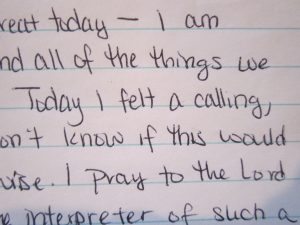 reat today – I am
nd all of the things we
Today I felt a calling,
on't know if this would
uise. I pray to the Lord
e interpreter of such a